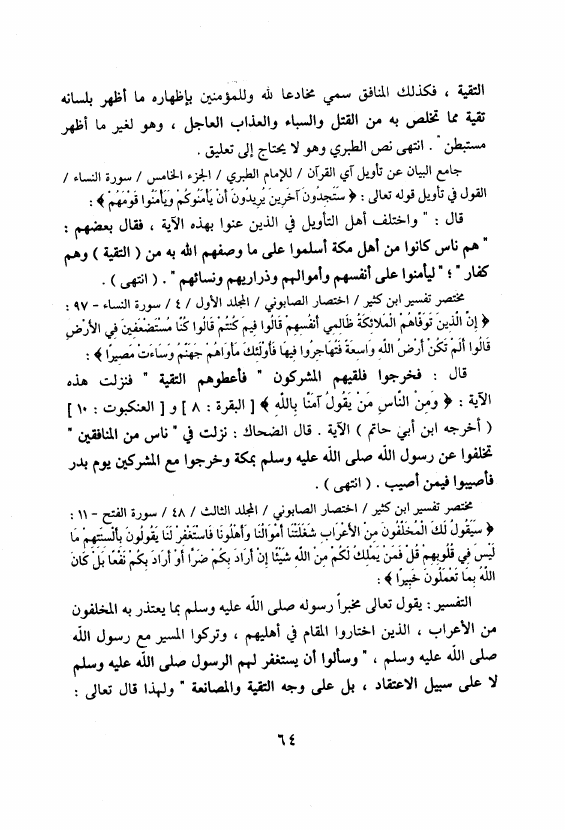 التقية ، فكذلك المنافق سمي مخادعا لله وللمؤمنين بإظهاره ما أظهر بلسانه
تقية مما تخلص به من القتل والسباء والعذاب العاجل ، وهو لغير ما أظهر
مستبطن " . انتهى نص الطبري وهو لا يحتاج إلى تعليق .
جامع البيان عن تأويل آي القرآن / للإمام الطبري / الجزء الخامس / سورة النساء /
القول في تأويل قوله تعالى : ﴿ سَتَجِدُونَ آخَرِينَ يُرِيدُونَ أَنْ يَأْمَنُوكُمْ وَيَأْمَنُوا قَوْمَهُمْ ﴾ :
قال : " واختلف أهل التأويل في الذين عنوا بهذه الآية ، فقال بعضهم :
" هم ناس كانوا من أهل مكة أسلموا على ما وصفهم الله به من ( التقية ) وهم
كفار " ؛ " ليأمنوا على أنفسهم وأموالهم وذراريهم ونسائهم " . ( انتهى ) .
مختصر تفسير ابن كثير / اختصار الصابوني / المجلد الأول / ٤ / سورة النساء - ٩٧ :
﴿ إِنَّ الَّذِينَ تَوَفَّاهُمُ الْمَلَائِكَةُ ظَالِمِي أَنْفُسِهِمْ قَالُوا فِيمَ كُنْتُمْ قَالُوا كُنَّا مُسْتَضْعَفِينَ فِي الْأَرْضِ
قَالُوا أَلَمْ تَكُنْ أَرْضُ اللَّهِ وَاسِعَةً فَتُهَاجِرُوا فِيهَا فَأُولَئِكَ مَأْوَاهُمْ جَهَنَّمُ وَسَاءَتْ مَصِيرًا ﴾ :
قال : فخرجوا فلقيهم المشركون " فأعطوهم التقية " فنزلت هذه
الآية : ﴿ وَمِنَ النَّاسِ مَنْ يَقُولُ آمَنَّا بِاللَّهِ ﴾ [ البقرة : ٨ ] و [ العنكبوت : ١٠ ]
( أخرجه ابن أبي حاتم ) الآية . قال الضحاك : نزلت في " ناس من المنافقين "
تخلفوا عن رسول الله صلى الله عليه وسلم بمكة وخرجوا مع المشركين يوم بدر
فأصيبوا فيمن أصيب . ( انتهى ) .
مختصر تفسير ابن كثير / اختصار الصابوني / المجلد الثالث / ٤٨ / سورة الفتح - ١١ :
﴿ سَيَقُولُ لَكَ الْمُخَلَّفُونَ مِنَ الْأَعْرَابِ شَغَلَتْنَا أَمْوَالُنَا وَأَهْلُونَا فَاسْتَغْفِرْ لَنَا يَقُولُونَ بِأَلْسِنَتِهِمْ مَا
لَيْسَ فِي قُلُوبِهِمْ قُلْ فَمَنْ يَمْلِكُ لَكُمْ مِنَ اللَّهِ شَيْئًا إِنْ أَرَادَ بِكُمْ ضَرًّا أَوْ أَرَادَ بِكُمْ نَفْعًا بَلْ كَانَ
اللَّهُ بِمَا تَعْمَلُونَ خَبِيرًا ﴾ :
التفسير : يقول تعالى مخبراً رسوله صلى الله عليه وسلم بما يعتذر به المخلفون
من الأعراب ، الذين اختاروا المقام في أهليهم ، وتركوا المسير مع رسول الله
صلى الله عليه وسلم ، " وسألوا أن يستغفر لهم الرسول صلى الله عليه وسلم
لا على سبيل الاعتقاد ، بل على وجه التقية والمصانعة " ولهذا قال تعالى :
٦٤